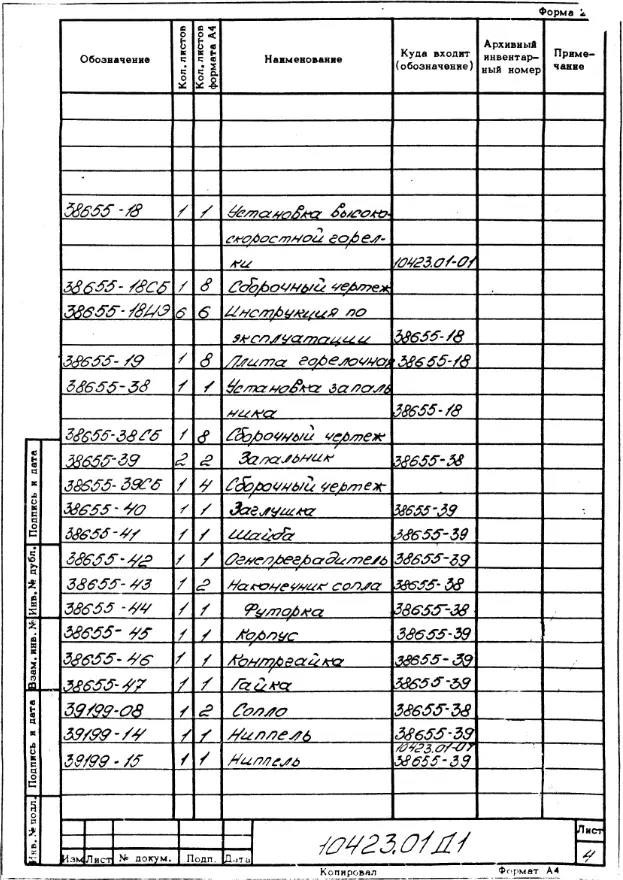 Форма 2
Обозначение Кол. листов Кол. листов формата А4 Наименование Куда входит (обозначение) Архивный инвентарный номер Примечание
38655-18 1 1 Установка высоко-
скоростной горел-
ки 10423.01-01
38655-18СБ 1 8 Сборочный чертеж
38655-18ИЭ 6 6 Инструкция по
эксплуатации 38655-18
38655-19 1 8 Плита горелочная 38655-18
38655-38 1 1 Установка запаль
ника 38655-18
38655-38СБ 1 8 Сборочный чертеж
38655-39 2 2 Запальник 38655-38
38655-39СБ 1 4 Сборочный чертеж
38655-40 1 1 Заглушка 38655-39
38655-41 1 1 Шайба 38655-39
38655-42 1 1 Огнепреградитель 38655-39
38655-43 1 2 Наконечник сопла 38655-38
38655-44 1 1 Футорка 38655-38
38655-45 1 1 Корпус 38655-39
38655-46 1 1 Контргайка 38655-39
38655-47 1 1 Гайка 38655-39
39199-08 1 2 Сопло 38655-38
39199-14 1 1 Ниппель 38655-39
10423.01-01
39199-15 1 1 Ниппель 38655-39
Подпись и дата
Инв. № дубл.
Взам. инв. №
Подпись и дата
Инв. № подл.
Изм Лист № докум. Подп. Дата
10423.01Д1
Лист
4
Копировал Формат А4